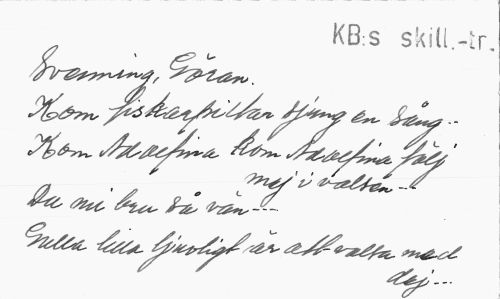 KB:s skill.-tr.
Svenning, Göran.
Kom fiskarpiltar sjung en sång--
Kom Adolfina kom Adolfina följ
mej i valsen--
Du mi bru så vän---
Gulla lilla ljuvligt är att valsa med
dej---